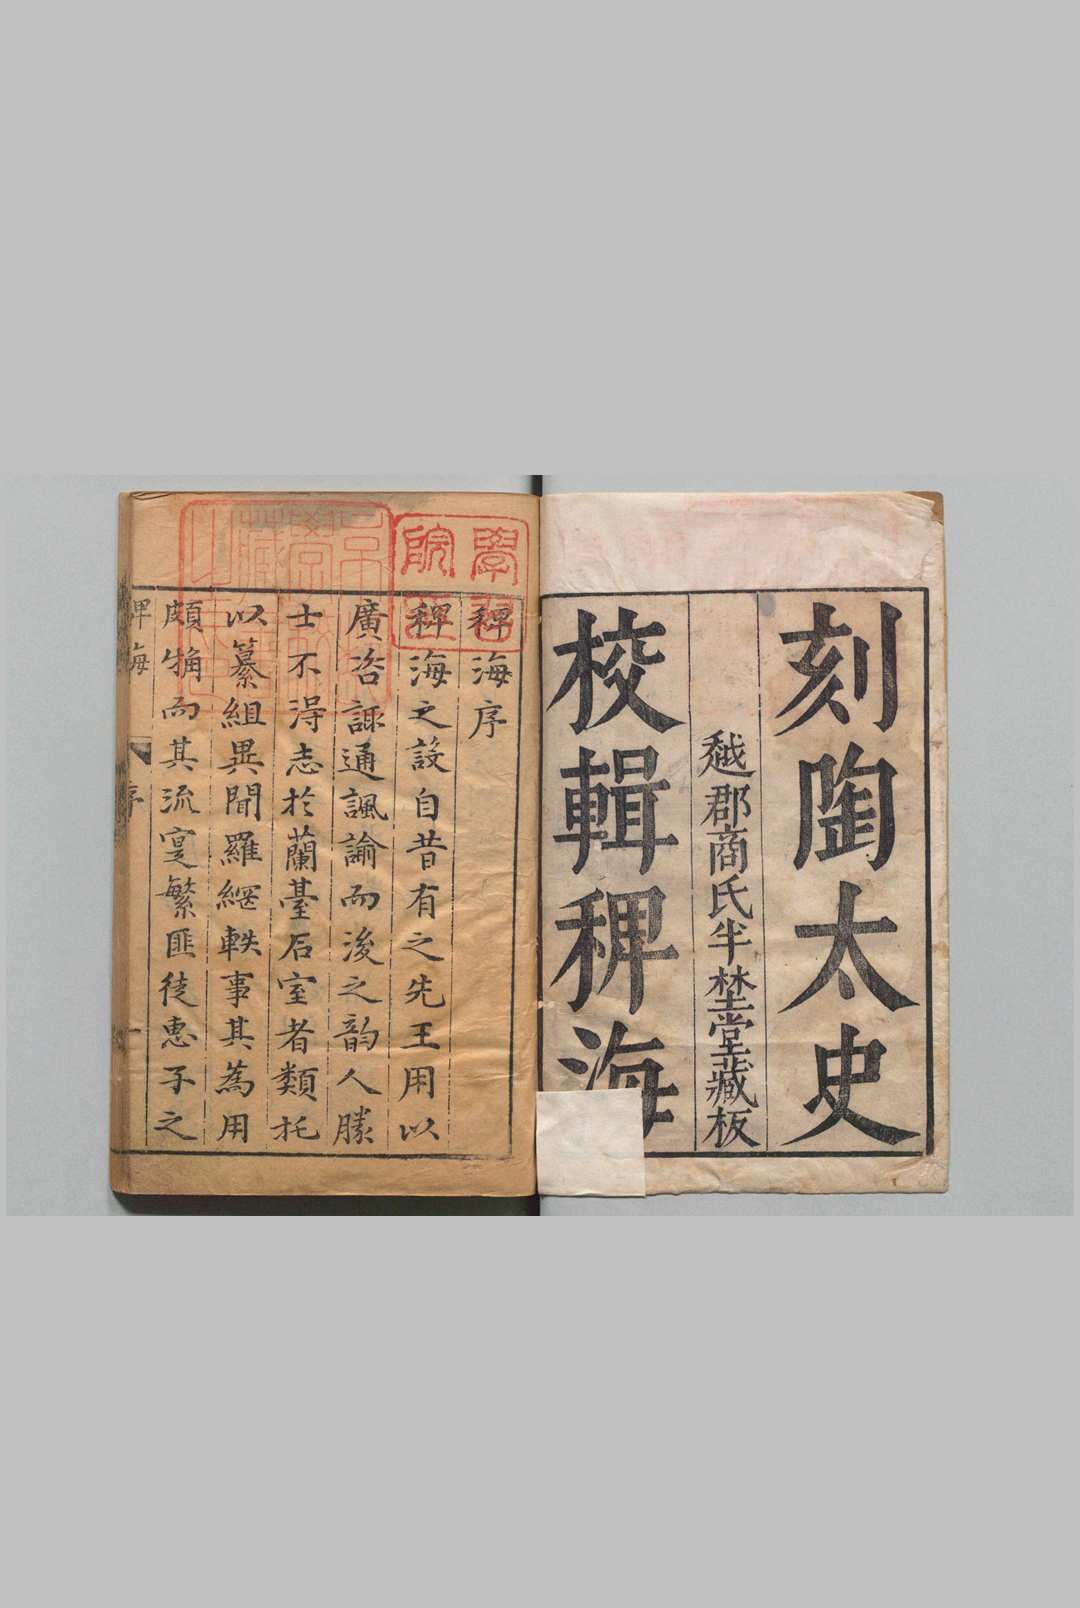 刻陶太史
越郡商氏半埜堂藏板
校輯稗海
稗海序
稗海之設自昔有之先王用以
廣咨諏通諷諭而後之韵人勝
士不淂志於蘭臺石室者類托
以纂組異聞羅網軼事其為用
頗狥而其流寔繁匪徒惠子之
稗海
序
一
學
院